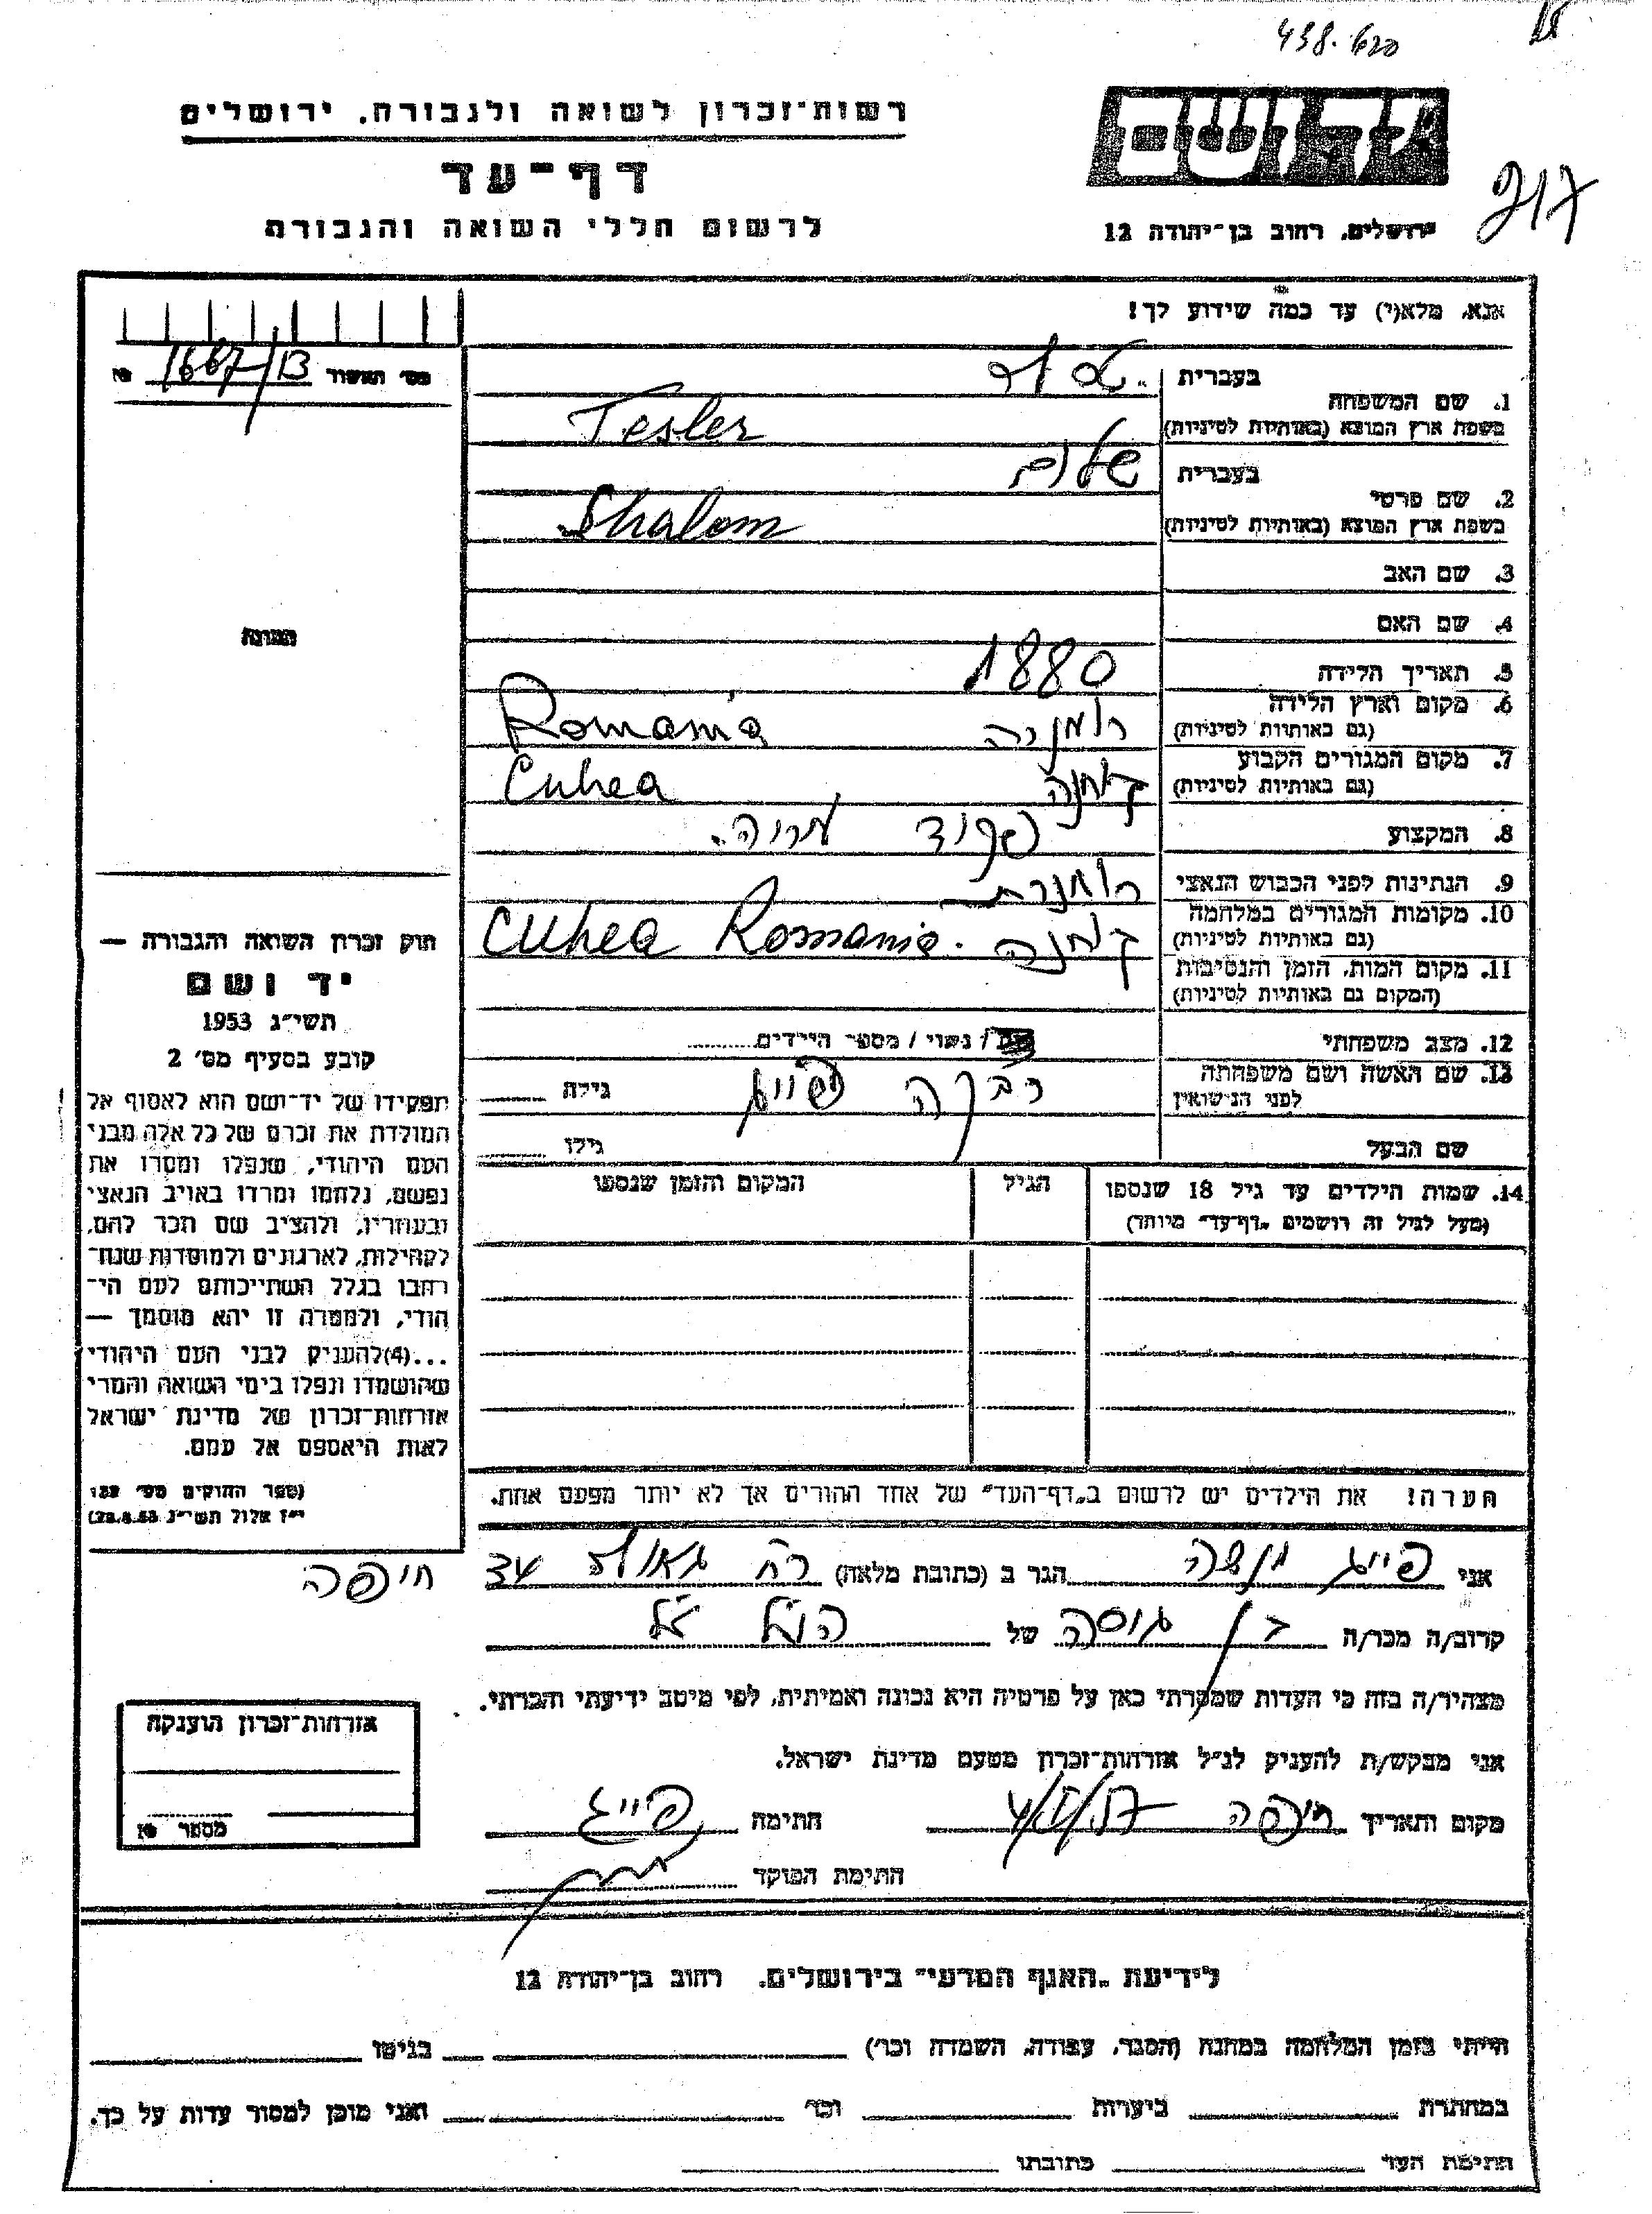 438.620
רשות־זכרון לשואה ולגבורה. ירושלים
דף־עד
לרשום חללי השואה והגבורה
יד ושם
ירושלים, רחוב בן־יהודה 12
217
אנא, מלא(י) עד כמה שידוע לך!
מס' תאשור 1667/13
1. שם המשפחה
בעברית
בשפת ארץ המוצא (באותיות לטיניות) Tesler
2. שם פרטי
בעברית שלום
בשפת ארץ המוצא (באותיות לטיניות) Shalom
3. שם האב
4. שם האם
5. תאריך הלידה 1880
6. מקום וארץ הלידה
(גם באותיות לטיניות) רומניה Romania
7. מקום המגורים הקבוע
(גם באותיות לטיניות) Cuhea
8. המקצוע
9. הנתינות לפני הכבוש הנאצי
10. מקומות המגורים במלחמה
(גם באותיות לטיניות) Cuhea Romania.
11. מקום המות, הזמן והנסיבות
(המקום גם באותיות לטיניות)
12. מצב משפחתי / נשוי / מספר הילדים
13. שם האשה ושם משפחתה
לפני הנישואין רבקה גילה
שם הבעל גילו
14. שמות הילדים עד גיל 18 שנספו הגיל המקום והזמן שנספו
(מעל לגיל זה רושמים "דף־עד" מיוחד)
הערה! את הילדים יש לרשום ב"דף־העד" של אחד ההורים אך לא יותר מפעם אחת.
תמונה
חוק זכרון השואה והגבורה —
יד ושם
תשי״ג 1953
קובע בסעיף מס׳ 2
תפקידו של יד־ושם הוא לאסוף אל
המולדת את זכרם של כל אלה מבני
העם היהודי, שנפלו ומסרו את
נפשם, נלחמו ומרדו באויב הנאצי
ובעוזריו, ולהציב שם וזכר להם,
לקהילות, לארגונים ולמוסדות שנח־
רבו בגלל השתייכותם לעם הי־
הודי, ולמטרה זו יהא מוסמך —
...(4) להעניק לבני העם היהודי
שהושמדו ונפלו בימי השואה והמרי
אזרחות־זכרון של מדינת ישראל
לאות היאספם אל עמם.
(ספר החוקים מס׳ 132
י״ז אלול תשי״ג 28.8.53)
אני פייג מנשה הגר ב (כתובת מלאה) רח גאולה 34 חיפה
קרוב/ה מכר/ה בן גיסה של הנ״ל
מצהיר/ה בזה כי העדות שמסרתי כאן על פרטיה היא נכונה ואמיתית, לפי מיטב ידיעתי והכרתי.
אני מבקש/ת להעניק לנ״ל אזרחות־זכרון מטעם מדינת ישראל.
מקום ותאריך חיפה חתימה פייג
חתימת הפוקד
אזרחות־זכרון הוענקה
מספר
לידיעת "האגף המדעי" בירושלים. רחוב בן־יהודה 12
הייתי בזמן המלחמה במחנה (הסגר, עבודה, השמדה וכו׳) בגיטו
במחתרת ביערות וכו׳ ואני מוכן למסור עדות על כך.
חתימת העד כתובתו